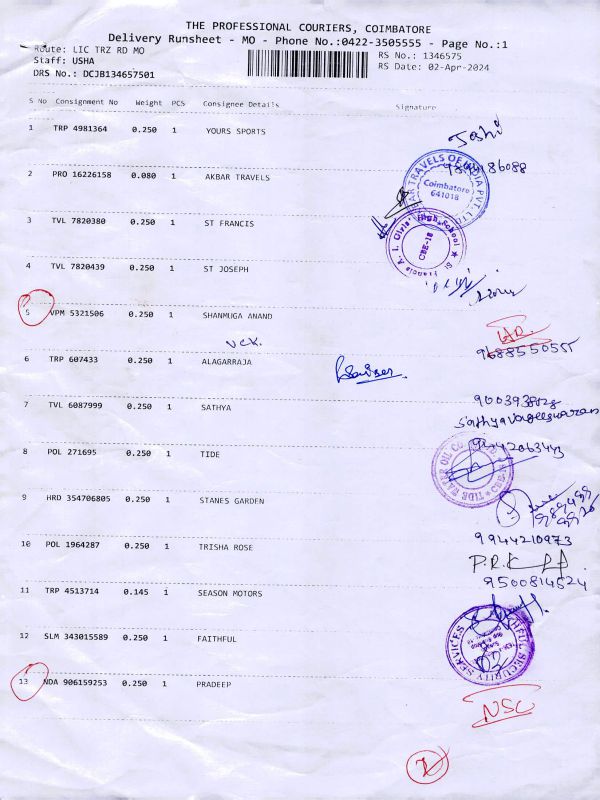 THE PROFESSIONAL COURIERS, COIMBATORE
Delivery Runsheet - MO - Phone No.:0422-3505555 - Page No.:1
Route: LIC TRZ RD MO
RS No.: 1346575
Staff: USHA
RS Date: 02-Apr-2024
DRS No.: DCJB134657501
S No Consignment No Weight PCS Consignee Details Signature
1 TRP 4981364 0.250 1 YOURS SPORTS
2 PRO 16226158 0.080 1 AKBAR TRAVELS
Coimbatore
641018
3 TVL 7820380 0.250 1 ST FRANCIS
CBE-18
4 TVL 7820439 0.250 1 ST JOSEPH
5 VPM 5321506 0.250 1 SHANMUGA ANAND
9688550555
6 TRP 607433 0.250 1 ALAGARRAJA
7 TVL 6087999 0.250 1 SATHYA
8 POL 271695 0.250 1 TIDE
9442063443
TIDE WATER OIL CO
9 HRD 354706805 0.250 1 STANES GARDEN
9944210973
10 POL 1964287 0.250 1 TRISHA ROSE
9500814524
11 TRP 4513714 0.145 1 SEASON MOTORS
12 SLM 343015589 1 FAITHFUL
FAITHFUL SECURITY SERVICES
13 NDA 906159253 0.250 1 PRADEEP
NSC